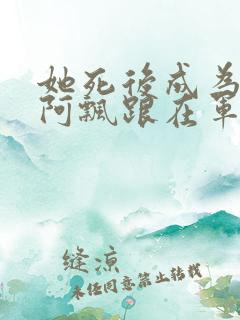 她死後成為
阿飄跟在軍
縫涼
未任同意禁止转载